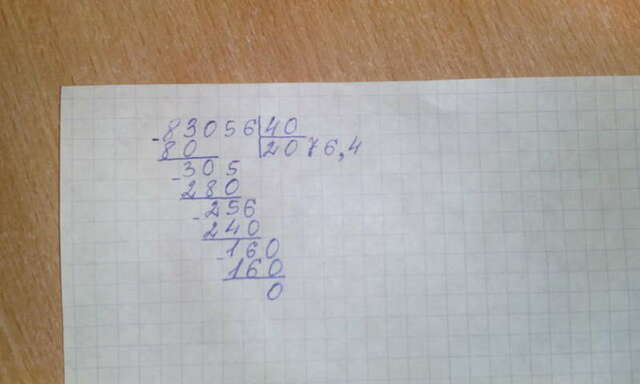 -83056|40
80 2076,4
-305
280
-256
240
-160
160
0